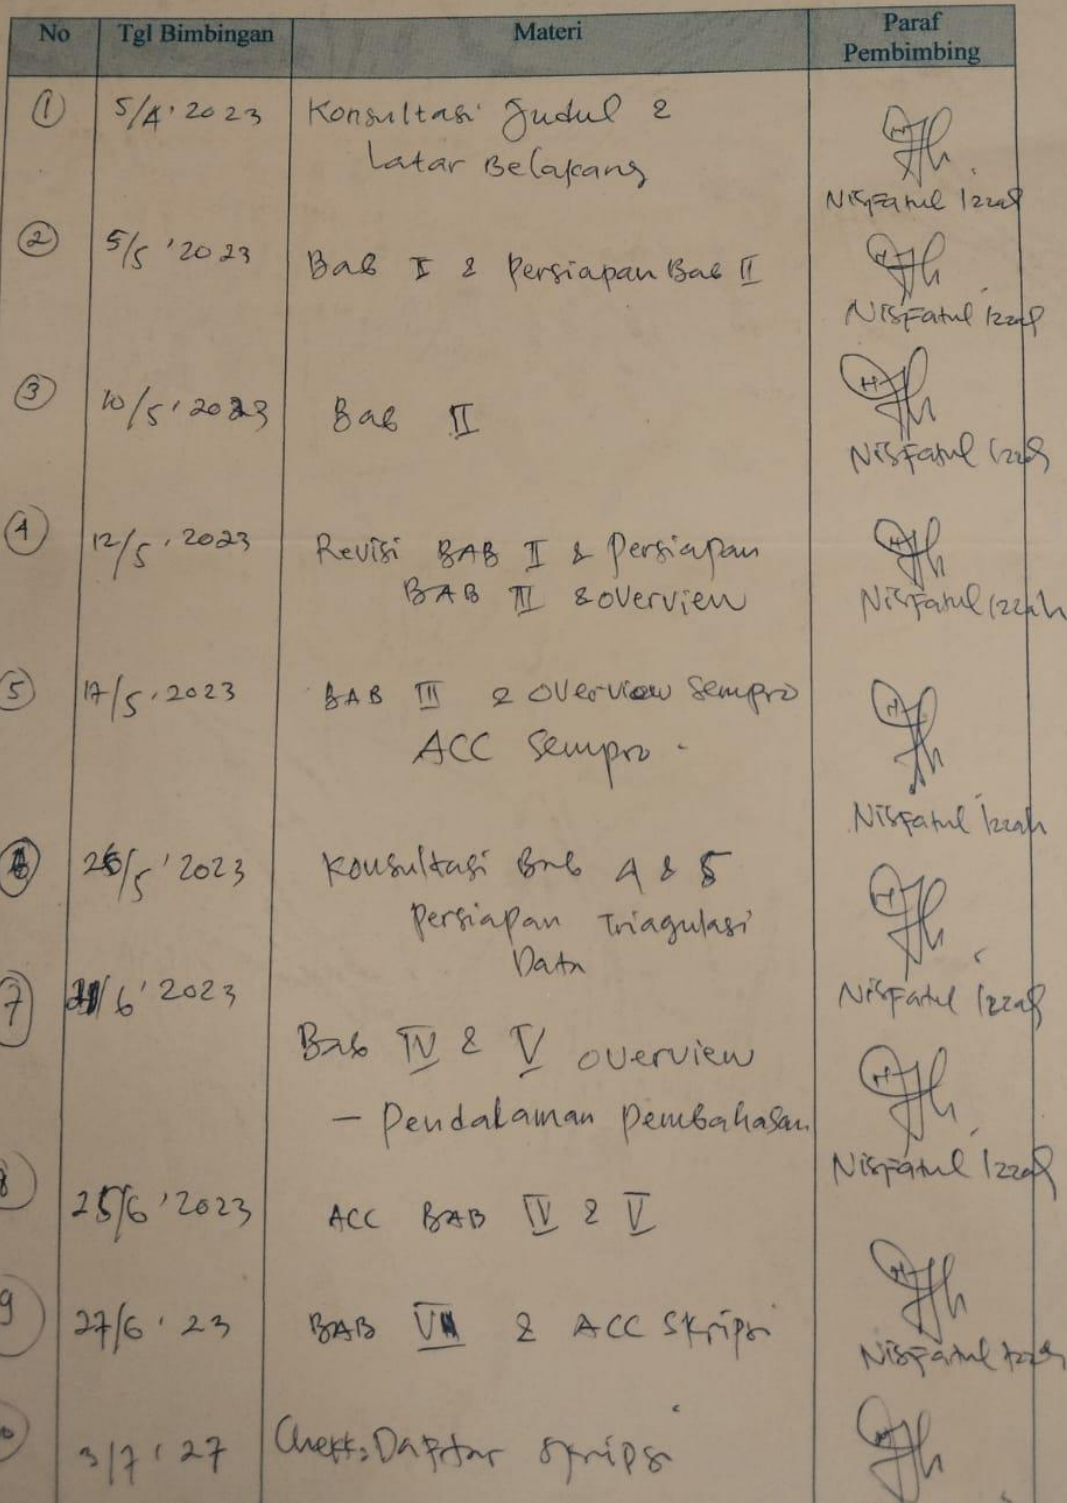 No Tgl Bimbingan Materi Paraf Pembimbing
1 5/4 '2023 Konsultasi Judul &
Latar Belakang
Nisfatul Izzah
2 5/5 '2023 Bab I & Persiapan Bab II
Nisfatul Izzah
3 10/5 '2023 Bab II
Nisfatul Izzah
4 12/5 '2023 Revisi BAB II & Persiapan
BAB III & overview
Nisfatul Izzah
5 17/5 '2023 BAB III & overview Sempro
ACC Sempro -
Nisfatul Izzah
6 /5 '2023 Konsultasi Bab 4 & 5
Persiapan Triagulasi
Data
Nisfatul Izzah
7 /6 '2023
Bab IV & V overview
- Pendalaman Pembahasan
Nisfatul Izzah
8 25/6 '2023 ACC BAB IV & V
9 27/6 '23 BAB & ACC Skripsi
Nisfatul Izzah
3/7 '27 Daftar Skripsi